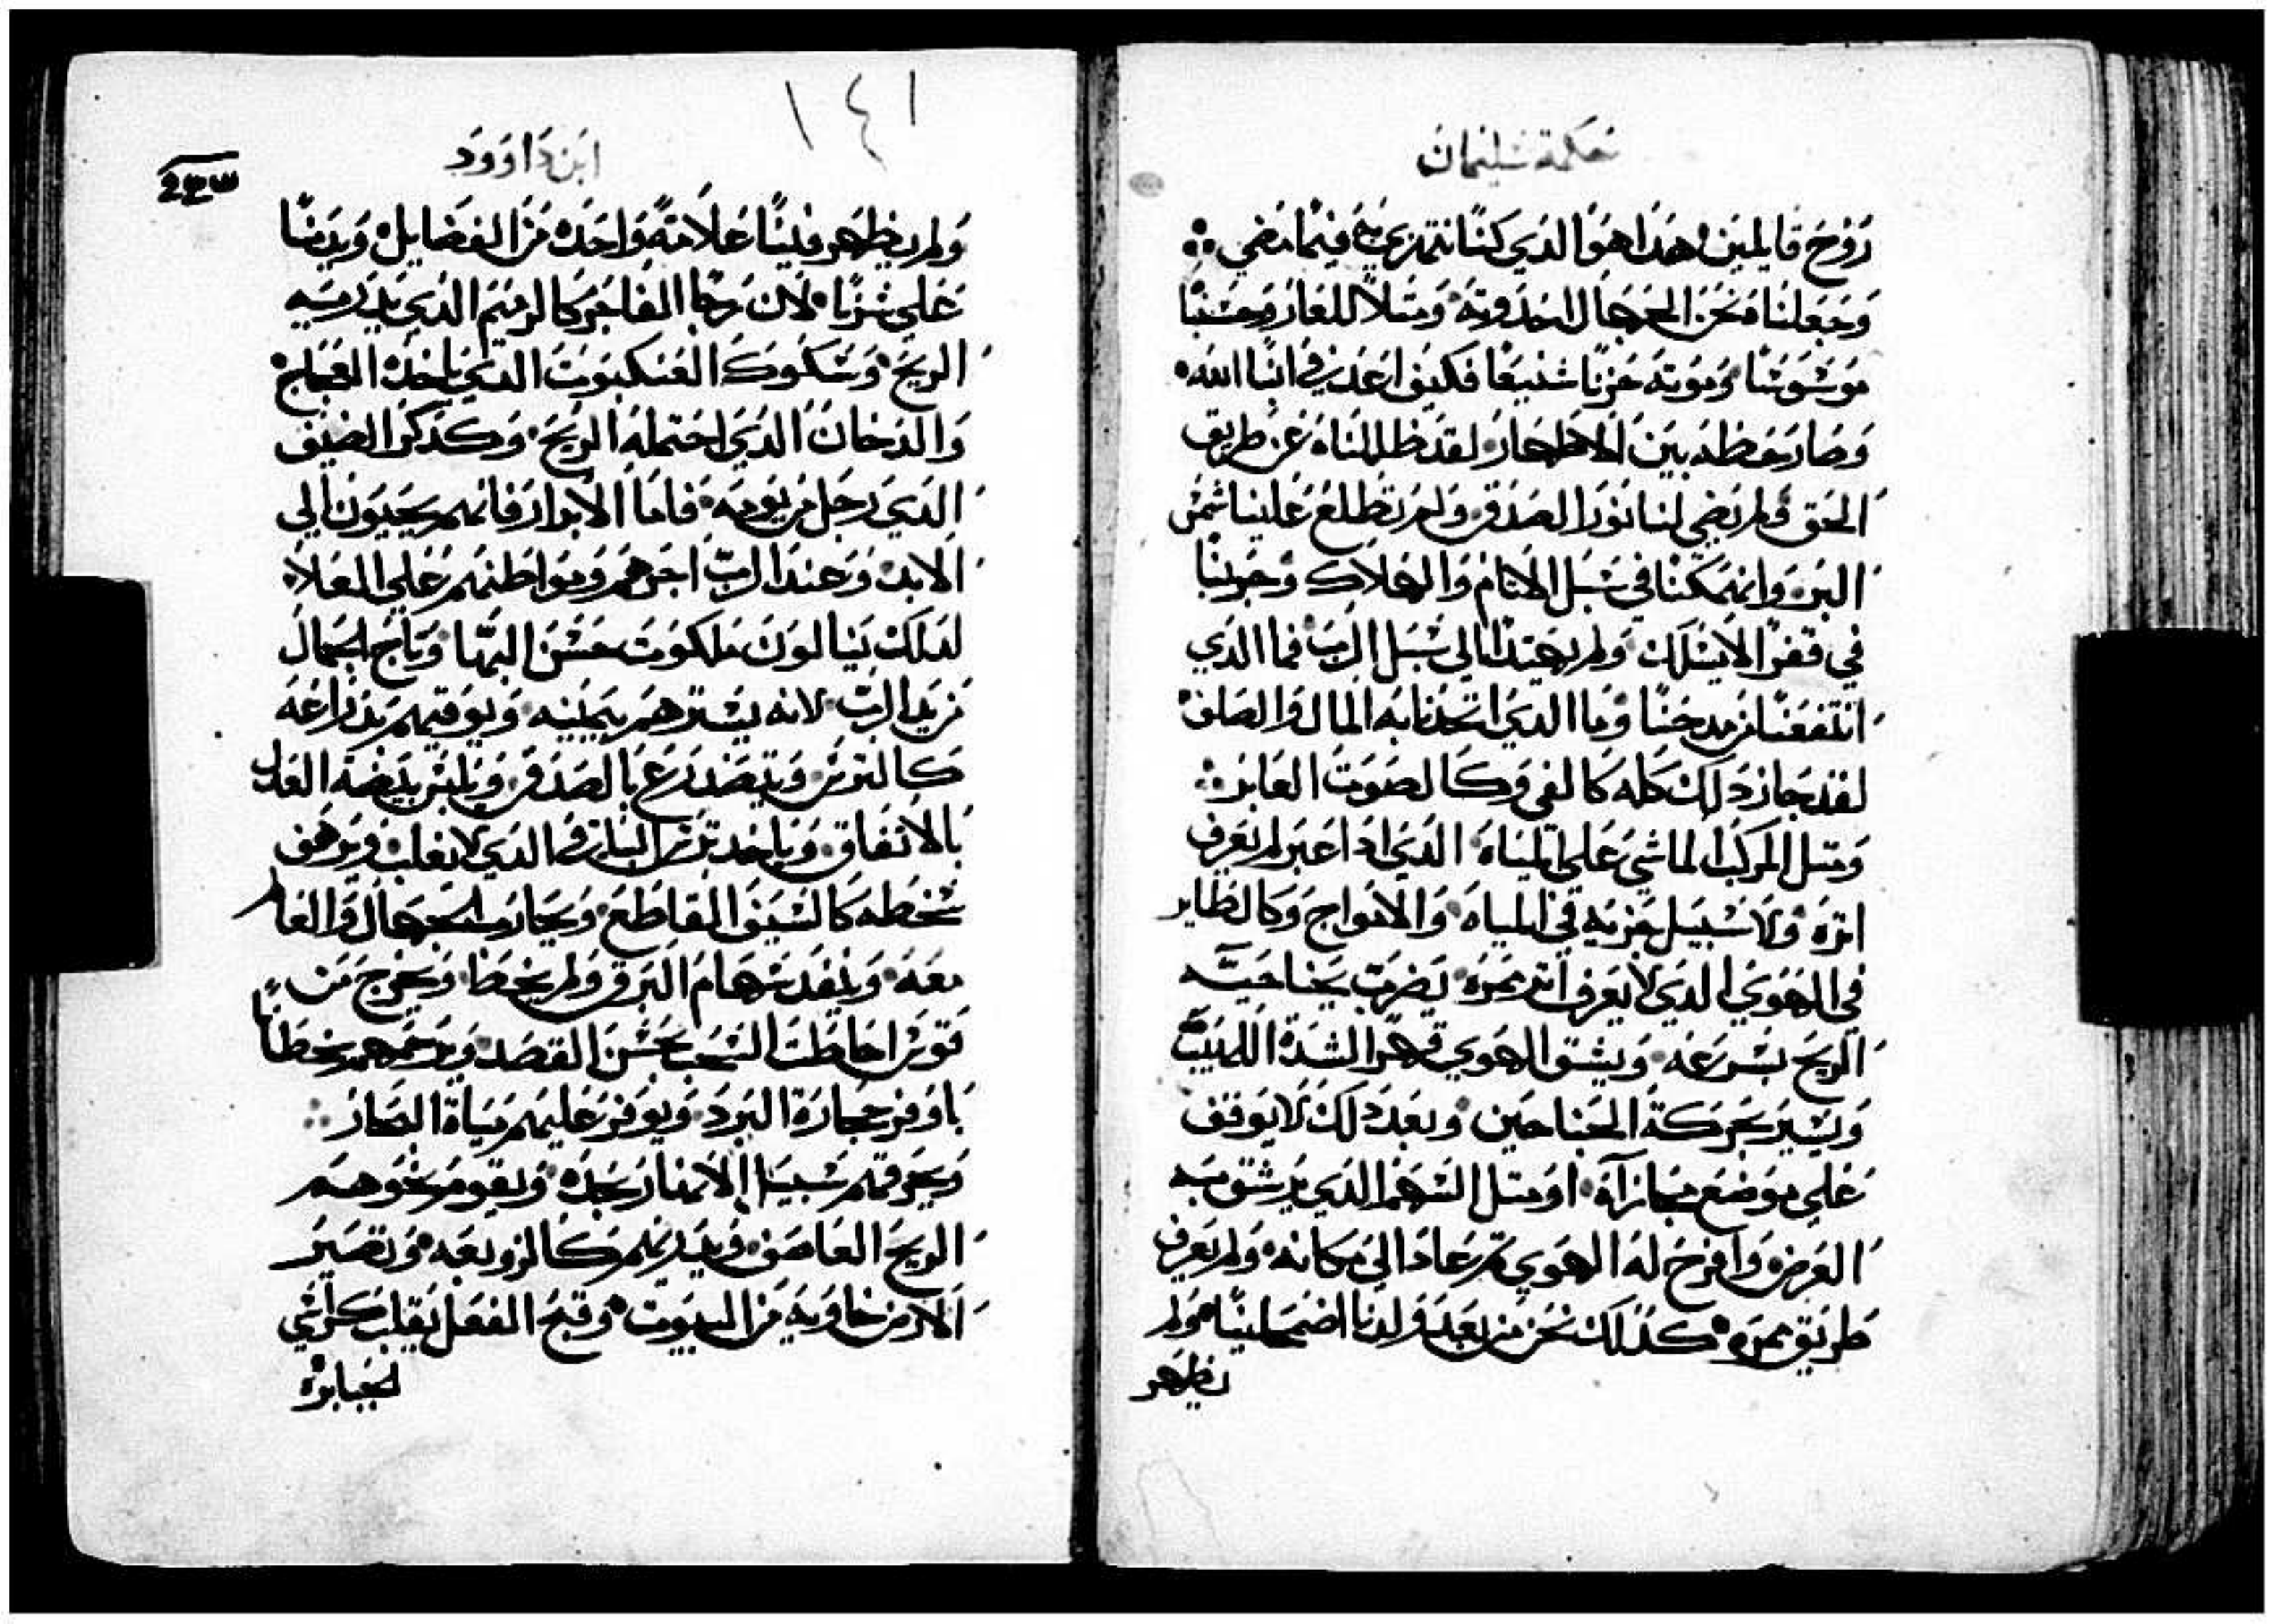 حكمة سليمان
روح قايلين هذا هو الدي كنا نتهزي به فيما مضي
وجعلناه نحن الجهال احدوته ومتلاً للعار وحسبنا
موسوسًا وموته حزنًا شنيعًا فكيف اعد في ابنا الله
وصار حظه بين الاطهار لقد ظللناه عن طريق
الحق ولم يضي لنا نور الصدق ولم تطلع علينا شمس
البر وانهمكنا في سبل الاتام والهلاك وجرينا
في قفر لا يسلك ولم نهتدا الي سبل الرب فما الدي
انتفعنا من مدحنا وما الدي اتحدنا به المال والصلف
لقد جاز دلك كله كالفي وكالصوت العابر
ومتل المركب الماشي علي المياه الدي ادا عبر لم يعرف
اتره ولا سبيل جزيه في المياه والامواج وكالطاير
في الهوي الدي لا يعرف اتر ممره يضرب بجناحيه
الريح بسرعه ويشق الهوي قهرا لشدة اللهيب
ويسير بحركة الجناحين وبعد دلك لا يوقف
علي موضع مجازاه او متل السهم الدي يرشق به
الغرض وافرخ له الهوي تم عاد الي مكانه ولم يعرف
طريق ممره كدلك نحن من بعد ولدنا اضمحلينا ولم
يظهر
١٤١
ابن داوود
ولم يظهر فينا علامة واحده من الفضايل وبدنا
علي شرنا لان رجا الفاجر كالرميم الدي يدريه
الريح وسلوك العنكبوت الدي ياخده العجاج
والدخان الدي احتمله الريح وكدكر الضيف
الدي رحل من يومه فاما الابرار فانهم يحيون الي
الابد وعند الرب اجرهم ومواطنهم علي العلا
لدلك ينالون ملكوت حسن البها وتاج الجمال
من يد الرب لانه يسترهم بيمينه ويوقيهم بدراعه
كالترس ويتضدرع بالصدق ويلبس بيضة العدل
بالاتفاق وياخد ترس البر الدي لا يغلب ويرهف
سخطه كالسيف القاطع ويحارب الجهال والعالم
معه وينفد سهام البرق ولم يخط ويخرج من
قوس احاطت السحب بحسن القصد ويرجمهم بخطاً
باوفر حجارة البرد ويوفر عليهم مياة البحار
ويغرقهم سبيل الانهار بجده ويقوم نحوهم
الريح العاصف ويديرهم كالزوبعه وتصير
الارض خاويه من البيوت وقبح الفعل يقلب كراسي
الجبابره